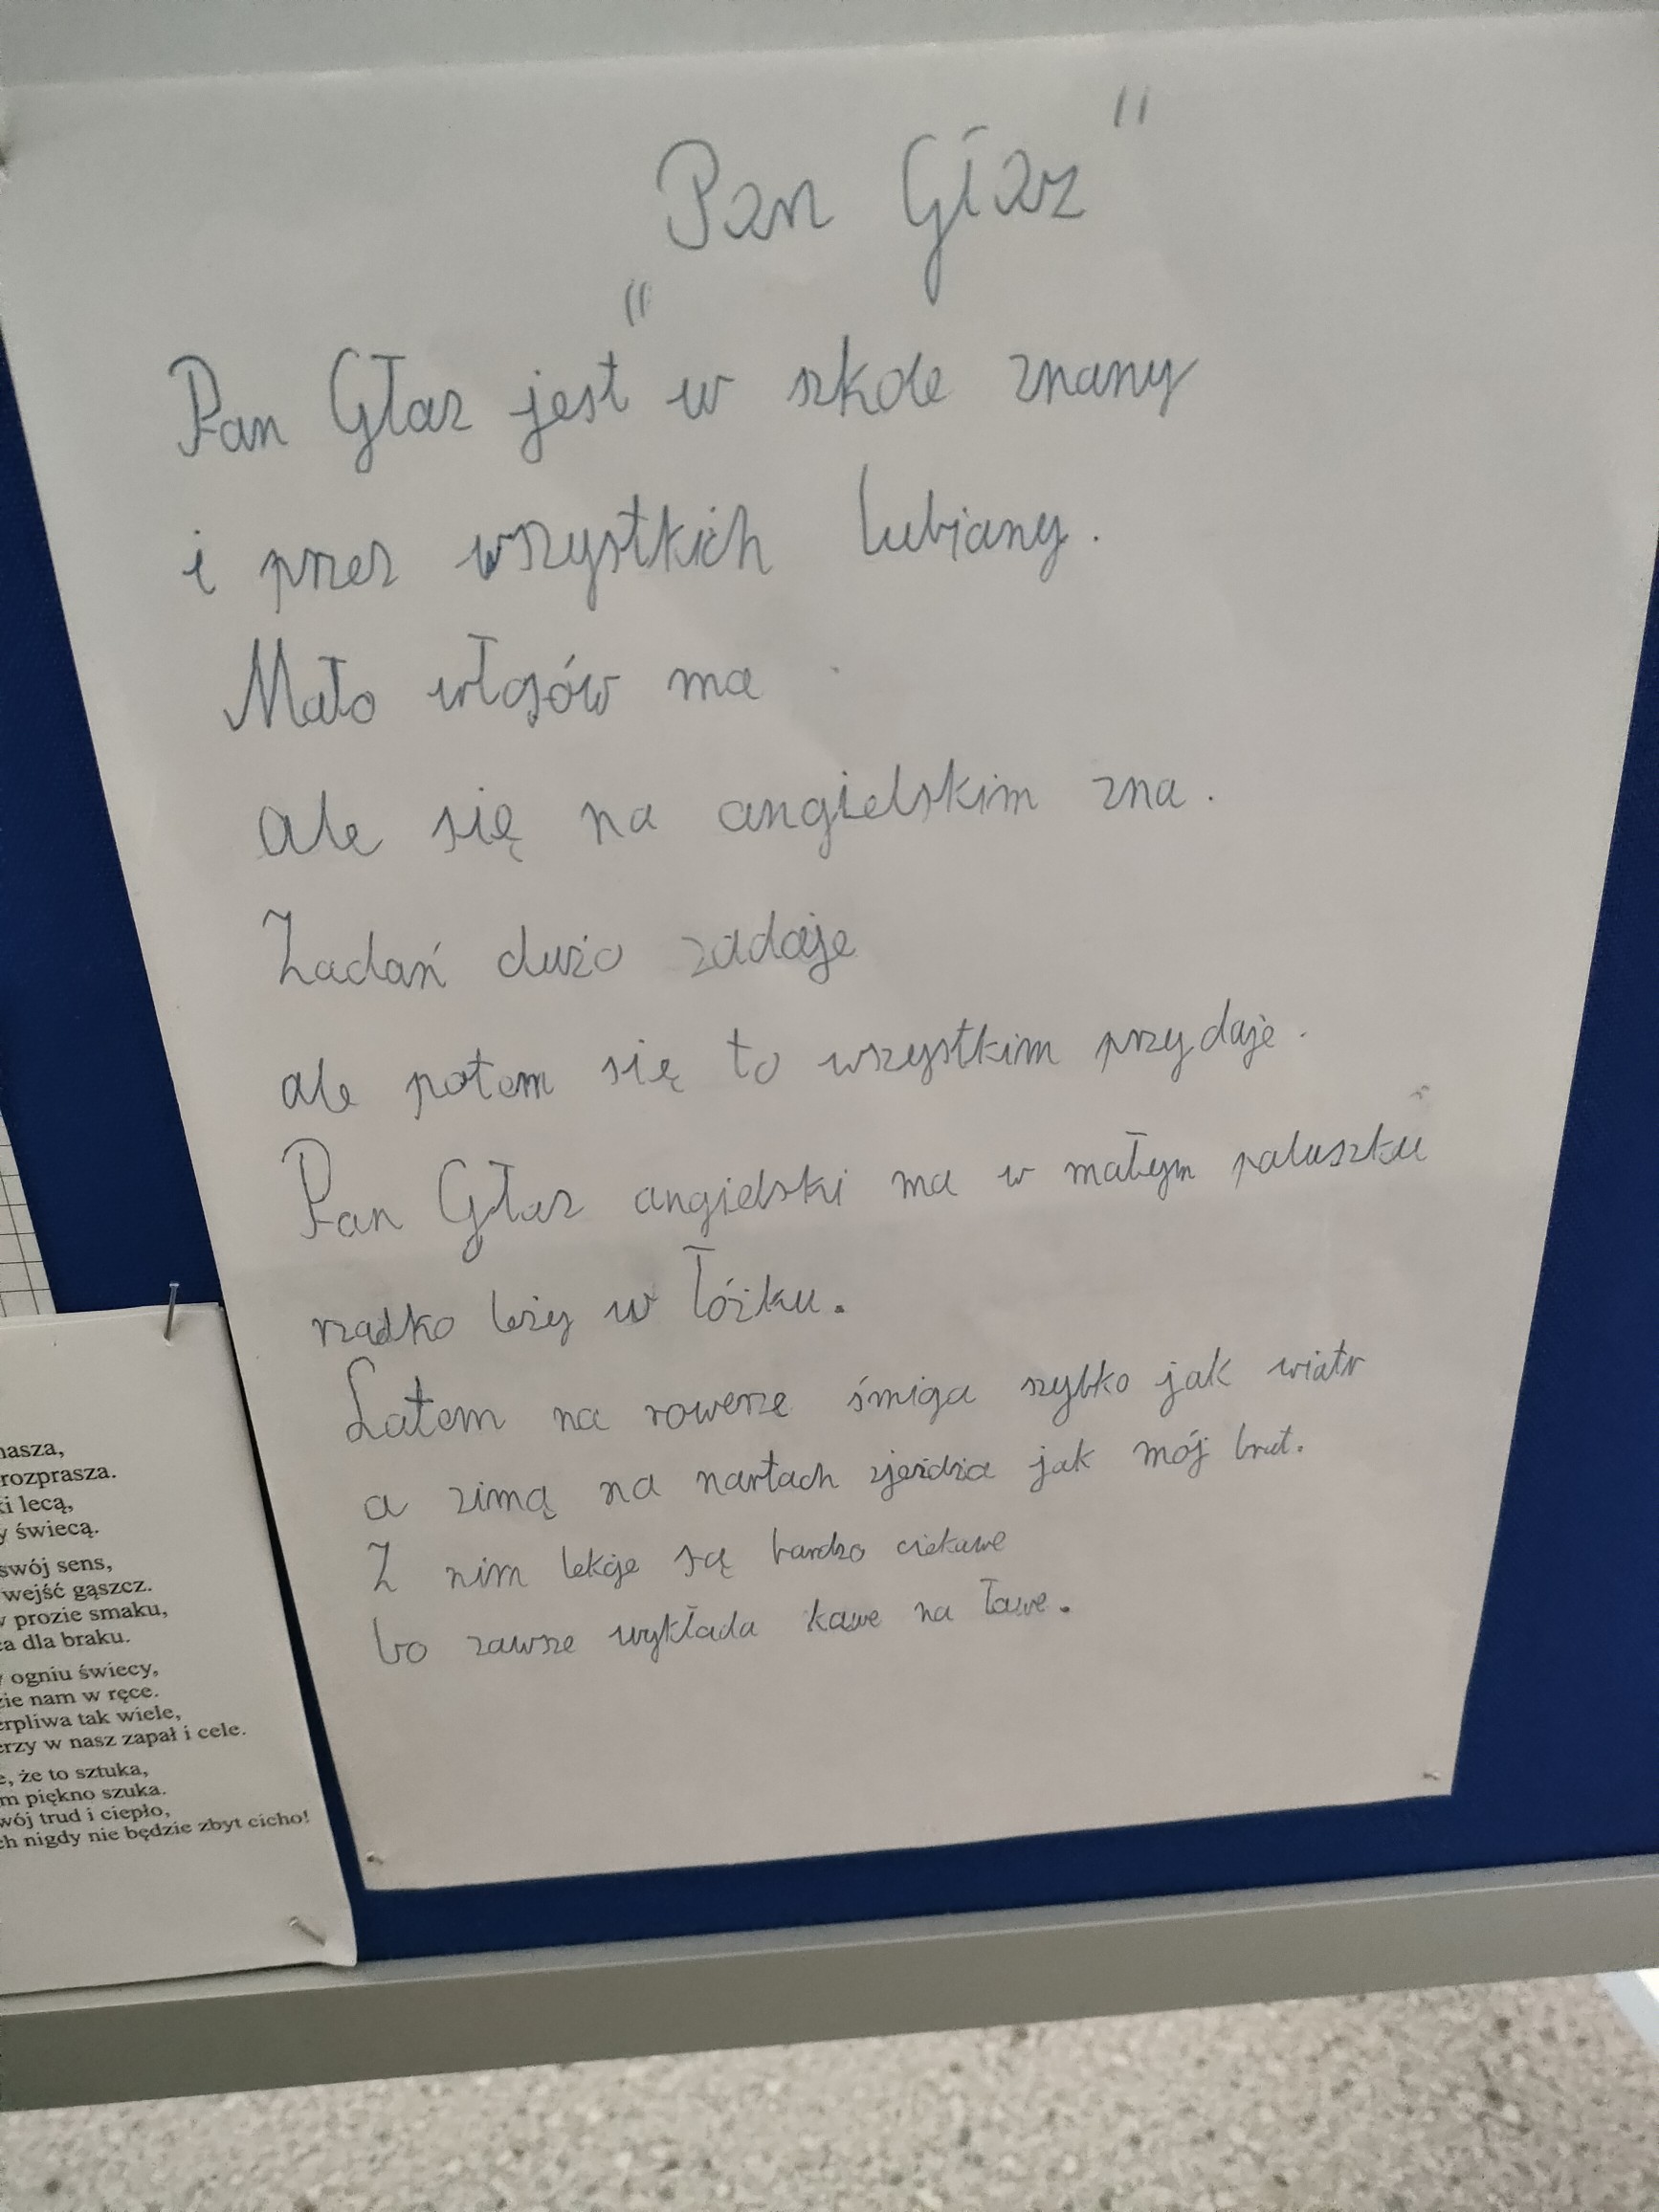 „Pan Głaz"
Pan Głaz jest w szkole znany
i przez wszystkich lubiany.
Mało włosów ma
ale się na angielskim zna.
Zadań dużo zadaje
ale potem się to wszystkim przydaje.
Pan Głaz angielski ma w małym paluszku
rzadko leży w łóżku.
Latem na rowerze śmiga szybko jak wiatr
a zimą na nartach zjeżdża jak mój brat.
Z nim lekcje są bardzo ciekawe
bo zawsze wykłada kawe na ławe.
rozprasza.
lecą,
świecą.
swój sens,
wejść gąszcz.
prozie smaku,
dla braku.
ogniu świecy,
nam w ręce.
tak wiele,
w nasz zapał i cele.
że to sztuka,
piękno szuka.
trud i ciepło,
nigdy nie będzie zbyt cicho!